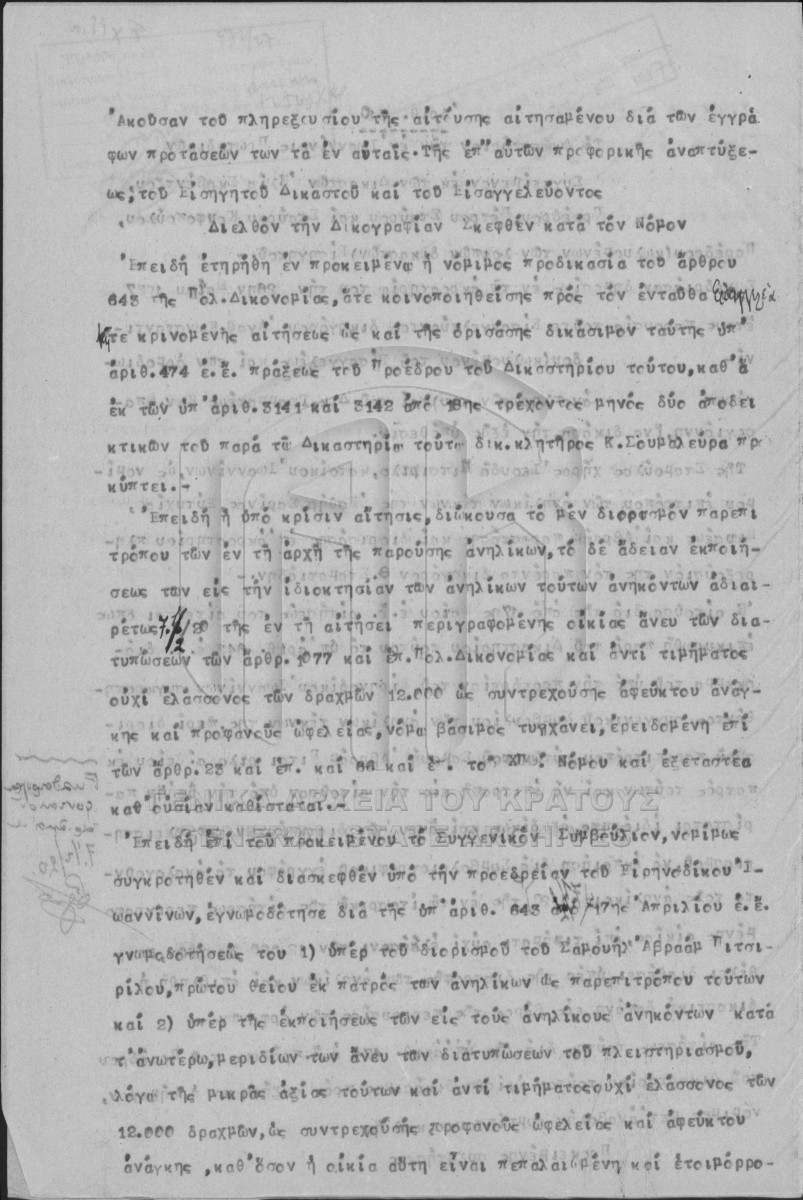 Ἀκοῦσαν τοῦ πληρεξουσίου τῆς αἰτούσης αἰτησαμένου διά τῶν ἐγγρά
φων προτάσεών των τά ἐν αὐταῖς. Τῆς ἐπ' αὐτῶν προφορικῆς ἀναπτύξε-
ως, τοῦ Εἰσηγητοῦ Δικαστοῦ καί τοῦ Εἰσαγγελεύοντος
Διελθόν τήν Δικογραφίαν Σκεφθέν κατά τόν Νόμον
Ἐπειδή ἐτηρήθη ἐν προκειμένω ἡ νόμιμος προδικασία τοῦ ἄρθρου
643 τῆς Πολ.Δικονομίας, ἅτε κοινοποιηθείσης πρός τόν ἐνταῦθα Εἰσαγγελέα
τῆς τε κρινομένης αἰτήσεως ὡς καί τῆς ὁρισάσης δικάσιμον ταύτης ὑπ'
ἀριθ.474 ἐ.ἔ. πράξεως τοῦ Προέδρου τοῦ Δικαστηρίου τούτου, καθ' ἅ
ἐκ τῶν ὑπ' ἀριθ.3141 καί 3142 ἀπό 18ης τρέχοντος μηνός δύο ἀποδει
κτικῶν τοῦ παρά τῶ Δικαστηρίω τούτω δικ.κλητῆρος Κ.Σουμαλεύρα πρ
κύπτει.-
Ἐπειδή ἡ ὑπό κρίσιν αἴτησις, διώκουσα τό μέν διορισμόν παρεπι
τρόπου τῶν ἐν τῆ ἀρχῆ τῆς παρούσης ἀνηλίκων, τό δέ ἄδειαν ἐκποιή-
σεως των εἰς τήν ἰδιοκτησίαν τῶν ἀνηλίκων τούτων ἀνηκόντων ἀδιαι-
ρέτως 7.1/2/20 τῆς ἐν τῆ αἰτήσει περιγραφομένης οἰκίας ἄνευ τῶν δια-
τυπώσεων τῶν ἄρθρ.1077 καί ἑπ.Πολ.Δικονομίας καί ἀντί τιμήματος
οὐχί ἐλάσσονος τῶν δραχμῶν 12.000 ὡς συντρεχούσης ἀφεύκτου ἀνάγ-
κης καί προφανοῦς ὠφελείας, νόμω βάσιμος τυγχάνει, ἐρειδομένη ἐπί
τῶν ἄρθρ.23 καί ἑπ. καί 66 καί ἑπ. τοῦ Νόμου καί ἐξεταστέα
καθ' οὐσίαν καθίσταται.-
ΓΕΝΙΚΑ ΑΡΧΕΙΑ ΤΟΥ ΚΡΑΤΟΥΣ
GENERAL STATE ARCHIVES
Ἐπειδή ἐπί τοῦ προκειμένου τό Συγγενικόν Συμβούλιον, νομίμως
συγκροτηθέν καί διασκεφθέν ὑπό τήν προεδρείαν τοῦ Εἰρηνοδίκου Ἰ-
ωαννίνων, ἐγνωμοδότησε διά τῆς ὑπ' ἀριθ. 643 ἀπό 17ης Ἀπριλίου ἐ.ἔ.
γνωμοδοτήσεώς του 1) ὑπέρ τοῦ διορισμοῦ τοῦ Σαμουήλ Ἀβραάμ Πιτσι-
ρίλου, πρώτου θείου ἐκ πατρός τῶν ἀνηλίκων ὡς παρεπιτρόπου τούτων
καί 2) ὑπέρ τῆς ἐκποιήσεως τῶν εἰς τούς ἀνηλίκους ἀνηκόντων κατά
τ' ἀνωτέρω, μεριδίων των ἄνευ τῶν διατυπώσεων τοῦ πλειστηριασμοῦ,
λόγω τῆς μικρᾶς ἀξίας τούτων καί ἀντί τιμήματος οὐχί ἐλάσσονος τῶν
12.000 δραχμῶν, ὡς συντρεχούσης προφανοῦς ὠφελείας καί ἀφεύκτου
ἀνάγκης ,καθ' ὅσον ἡ οἰκία αὕτη εἶναι πεπαλαιωμένη καί ἑτοιμόρρο-